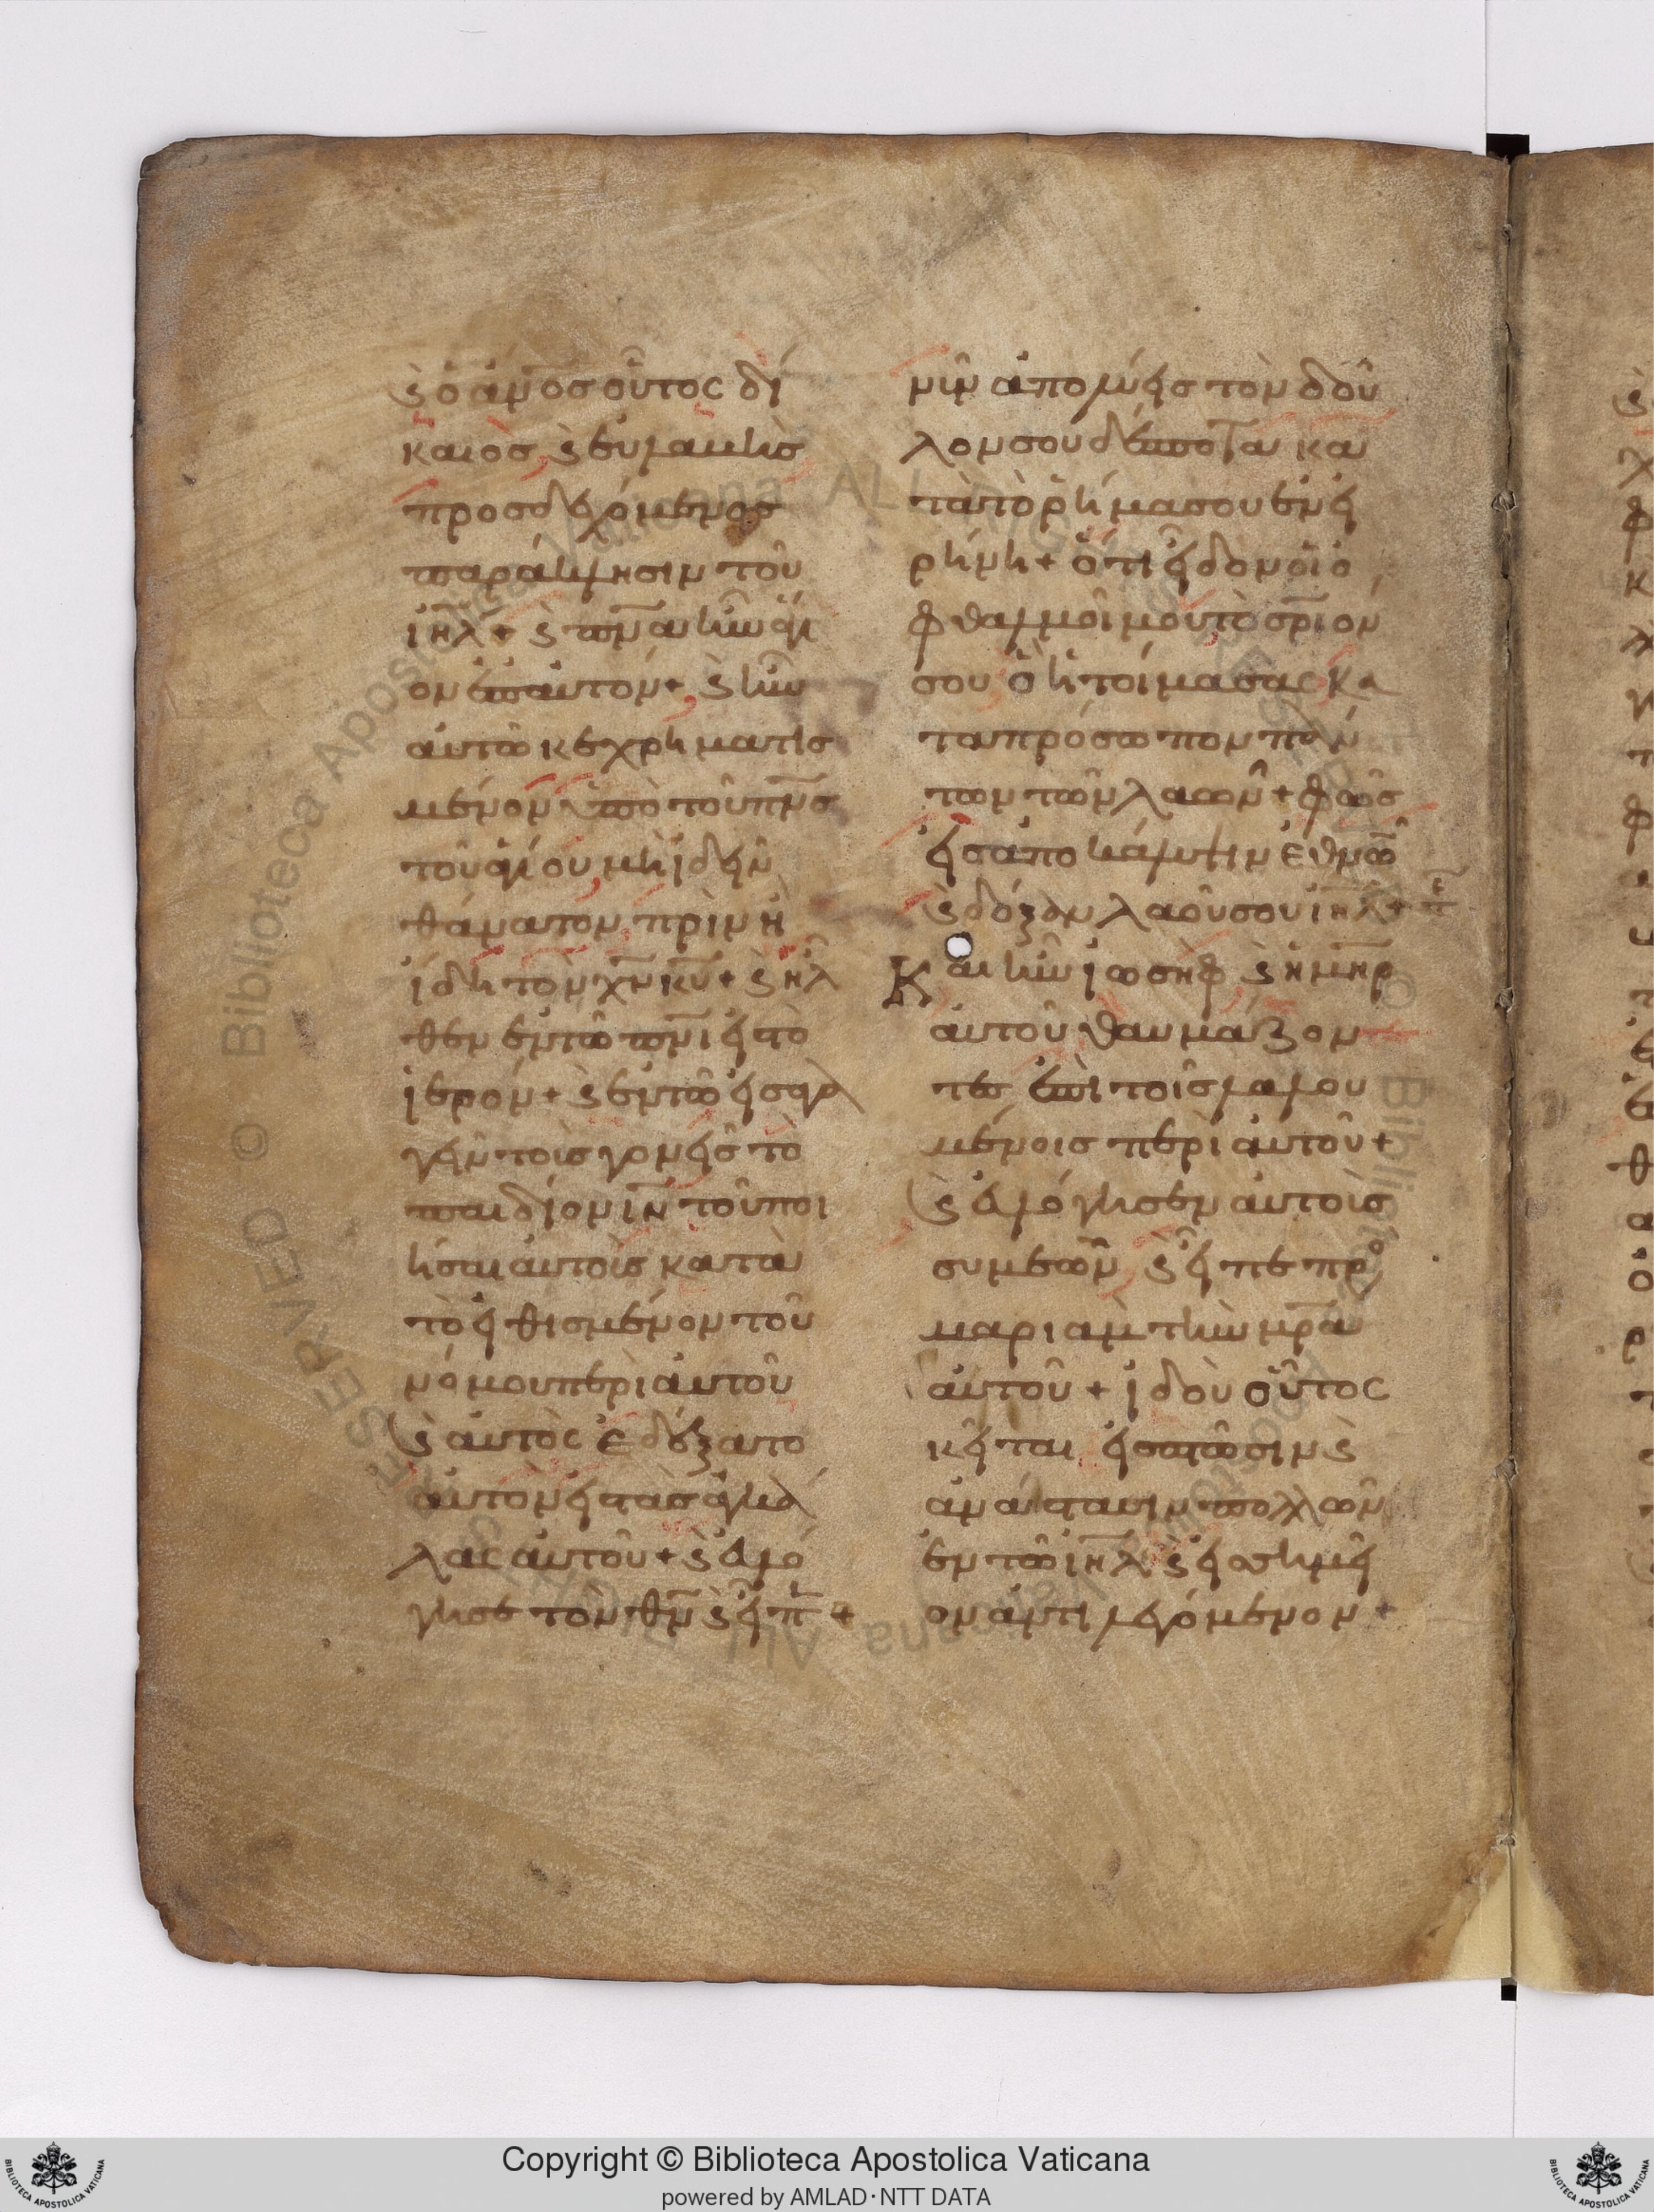 ϗ ὁ ἀν̅ο̅ς οὗτος δί
καιὸς ϗ ἐυλαβὴς
προσδεχόμενος
παράκλησιν τοῦ
ι̅η̅λ + ϗ π̅ν̅α ἦν ἅγι
ον ἐπαυτόν + ϗ ἦν
αὐτῶ κεχρηματις
μένον ὑπὸ τοῦ π̅ν̅ς
τοῦ ἁγίου μὴ ἰδεῖν
θάνατον πρὶν ἢ
ἴδη τὸν χ̅ν κ̅υ + ϗ ἦλ
θεν ἐν τῶ π̅ν̅ι εἰς τὸ
ἱερόν + ϗ ἐν τῶ εἰσαγα
γεῖν τοὺς γονεῖς τὸ
παιδίον ι̅ν τοῦ ποι
ῆσαι αὐτοὺς κατὰ
τὸ εἰθισμένον τοῦ
νόμου περὶ αὐτοῦ
ϗ αὐτὸς ἐδέξατο
αὐτὸν εἰς τὰς ἀγκά
λας αὐτοῦ + ϗ ἐυλό
γησε τὸν θ̅ν ϗ εἶπ +
νῦν ἀπολύεις τὸν δοῦ
λον σου δέσποτα κα
τὰ τὸ ῥῆμα σου ἐν εἰ
ρήνη + ὅτι εἶδον οἱ ὀ
φθαλμοί μου τὸ σ̅ρ̅ιον
σου ὃ ἡτοίμασας κα
τα πρόσωπον πάν
των τῶν λαῶν + φῶς
εἰς ἀποκάλυψιν ἐθνῶ
ϗ δόξαν λαοῦ σου ι̅η̅λ +
Και ἦν ἰωσὴφ ϗ ἡ μ̅η̅ρ
αὐτοῦ θαυμάζον
τες ἐπὶ τοῖς λαλου
μένοις περὶ αὐτοῦ +
ϗ ἐυλόγησεν αὐτοὺς
συμεῶν ϗ εἶπε πρὸ
μαριὰμ τὴν μ̅ρ̅α
αὐτοῦ + ἰδοὺ οὗτος
κεῖται εἰς πτῶσιν ϗ
ἀνάστασιν πολλῶν
ἐν τῶ ι̅η̅λ ϗ εἰς σημεῖ
ον ἀντιλεγόμενον +
Copyright © Biblioteca Apostolica Vaticana
powered by AMLAD·NTT DATA